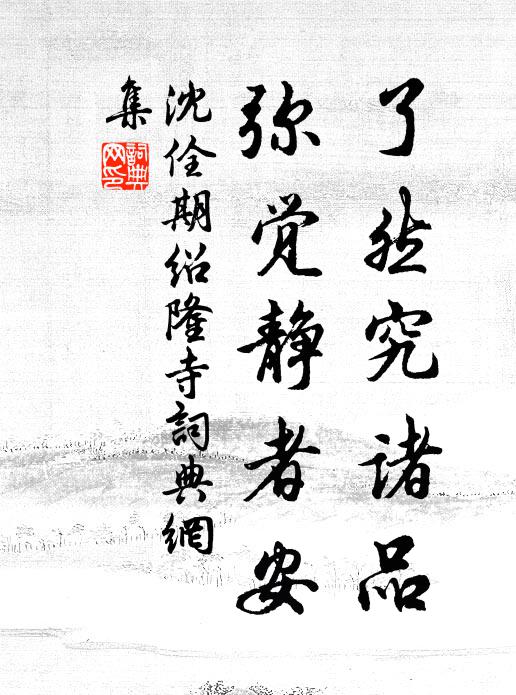 了然究诸品
弥觉静者安
沈佺期绍隆寺詞典網
集
詞典网印